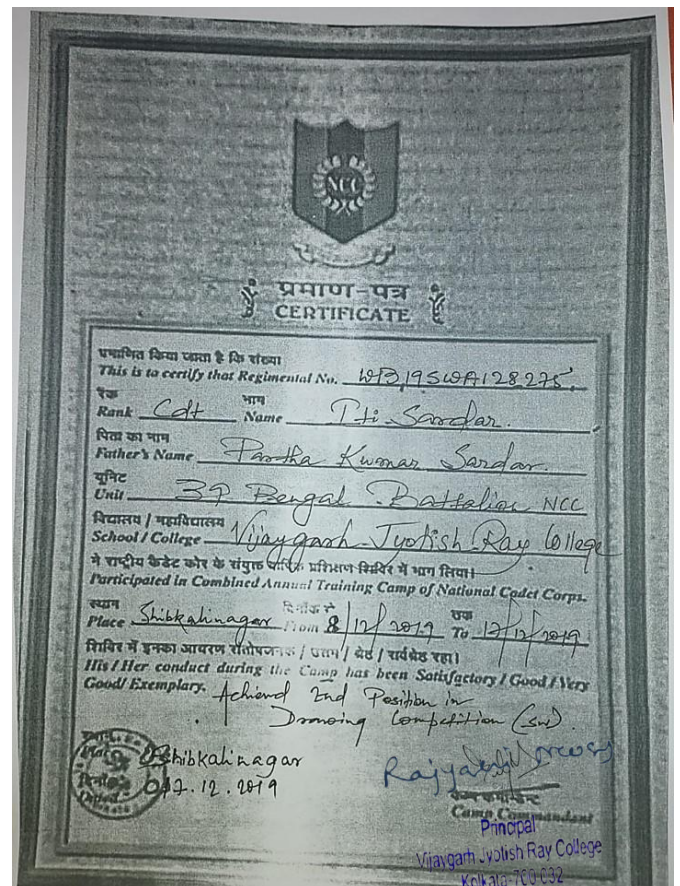 NCC
प्रमाण-पत्र
CERTIFICATE
प्रमाणित किया जाता है कि संख्या
This is to certify that Regimental No. WB19SWA128275
रैंक नाम
Rank Cdt Name Iti Sardar.
पिता का नाम
Father's Name Partha Kumar Sardar.
यूनिट
Unit 39 Bengal Battalion NCC
विद्यालय / महाविद्यालय
School / College Vijaygarh Jyotish Ray College
ने राष्ट्रीय कैडेट कोर के संयुक्त वार्षिक प्रशिक्षण शिविर में भाग लिया।
Participated in Combined Annual Training Camp of National Cadet Corps.
स्थान दिनाँक से तक
Place Shibkalinagar From 8/12/2019 To 17/12/2019
शिविर में इनका आचरण संतोषजनक / उत्तम / श्रेष्ठ / सर्वश्रेष्ठ रहा।
His / Her conduct during the Camp has been Satisfactory / Good / Very
Good/ Exemplary. Achiend 2nd Position in
Drawing Competition (SW).
Shibkalinagar
17.12.2019
Dated
Camp Commandant
Principal
Vijaygarh Jyotish Ray College
Kolkata-700 032